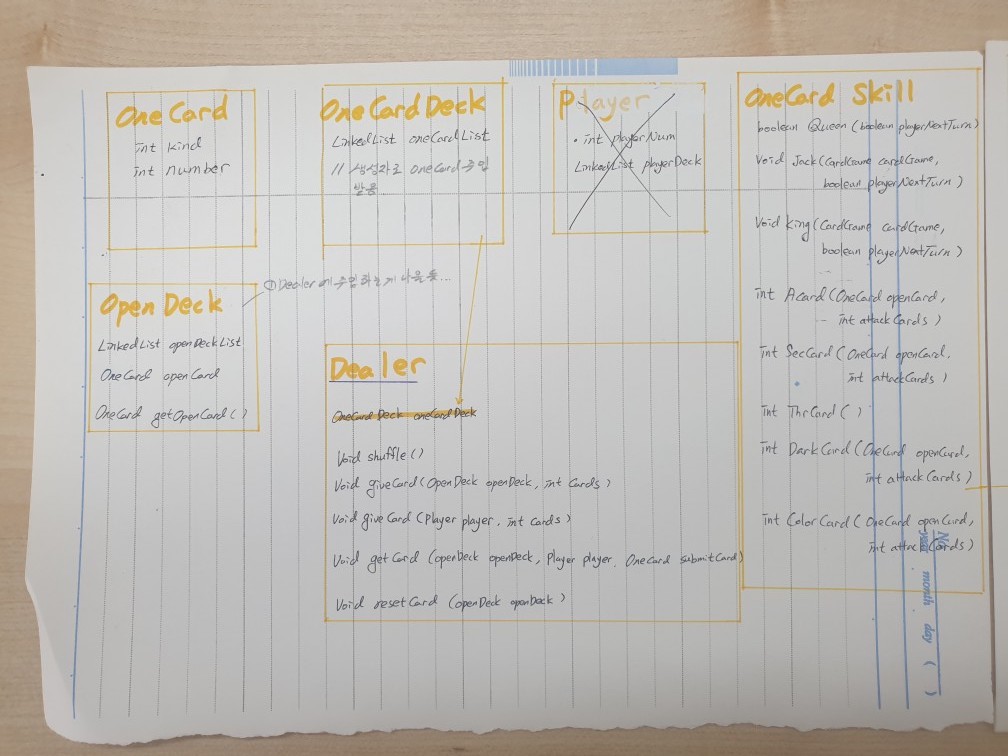 OneCard
int kind
int number
OneCardDeck
LinkedList oneCardList
// 생성자로 oneCard 주입
받음
Player
· int playerNum
LinkedList playerDeck
OneCard Skill
boolean Queen (boolean playerNextTurn)
Void Jack(CardGame cardGame,
boolean playerNextTurn)
Void King(CardGame cardGame,
boolean playerNextTurn)
int Acard(OneCard openCard,
int attackCards)
int SecCard(OneCard openCard,
int attackCards)
int ThrCard( )
int DarkCard(OneCard openCard,
int attackCards)
int ColorCard(OneCard openCard,
int attackCards)
Open Deck
LinkedList openDeckList
OneCard openCard
OneCard getOpenCard( )
① Dealer에 주입하는게 나을듯...
Dealer
OneCardDeck oneCardDeck
Void shuffle()
Void giveCard(OpenDeck openDeck, int Cards)
Void giveCard (Player player, int cards)
Void getCard (openDeck openDeck, Player player, OneCard submitCard)
Void resetCard (openDeck openDeck)
No.
year month day ( )